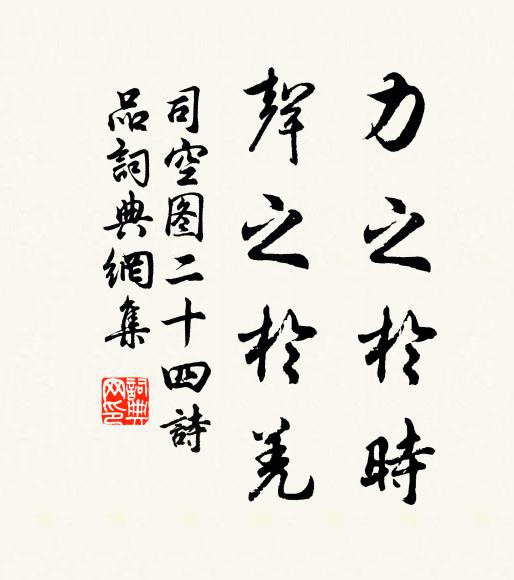 力之於時
聲之於羌
司空图二十四詩
品詞典網集
詞典
网印